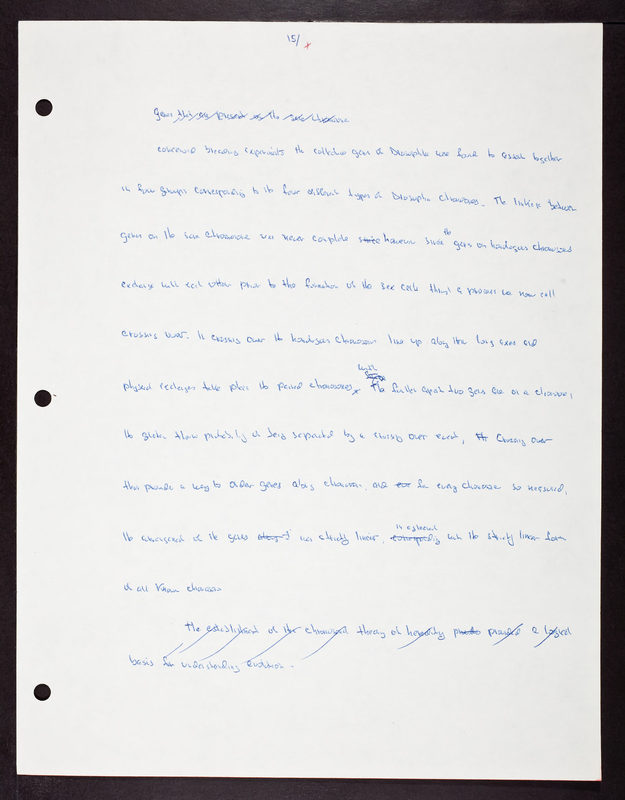 15/ x
genes that are present on the same chromosome
concerned breeding experiments the collective genes of Drosophila were found to assort together
in four groups corresponding to the four different types of Drosophila chromosomes. The linkage between
genes on the same chromosome was never complete since however since the genes on homologous chromosomes
exchange with each other prior to the formation of the sex cells through a process we now call
crossing over. In crossing over the homologous chromosomes line up along their long axes and
physical exchanges take place the paired chromosomes, with The further apart two genes are on a chromosome,
the greater their probability of being separated by a crossing over event, Crossing over
thus provide a way to order genes along chromosomes, and for every chromosome so measured,
the arrangement of the genes was strictly linear, in agreement with the strictly linear form
of all known chromosomes
The establishment of the chromosomal theory of heredity provided a logical
basis for understanding evolution.